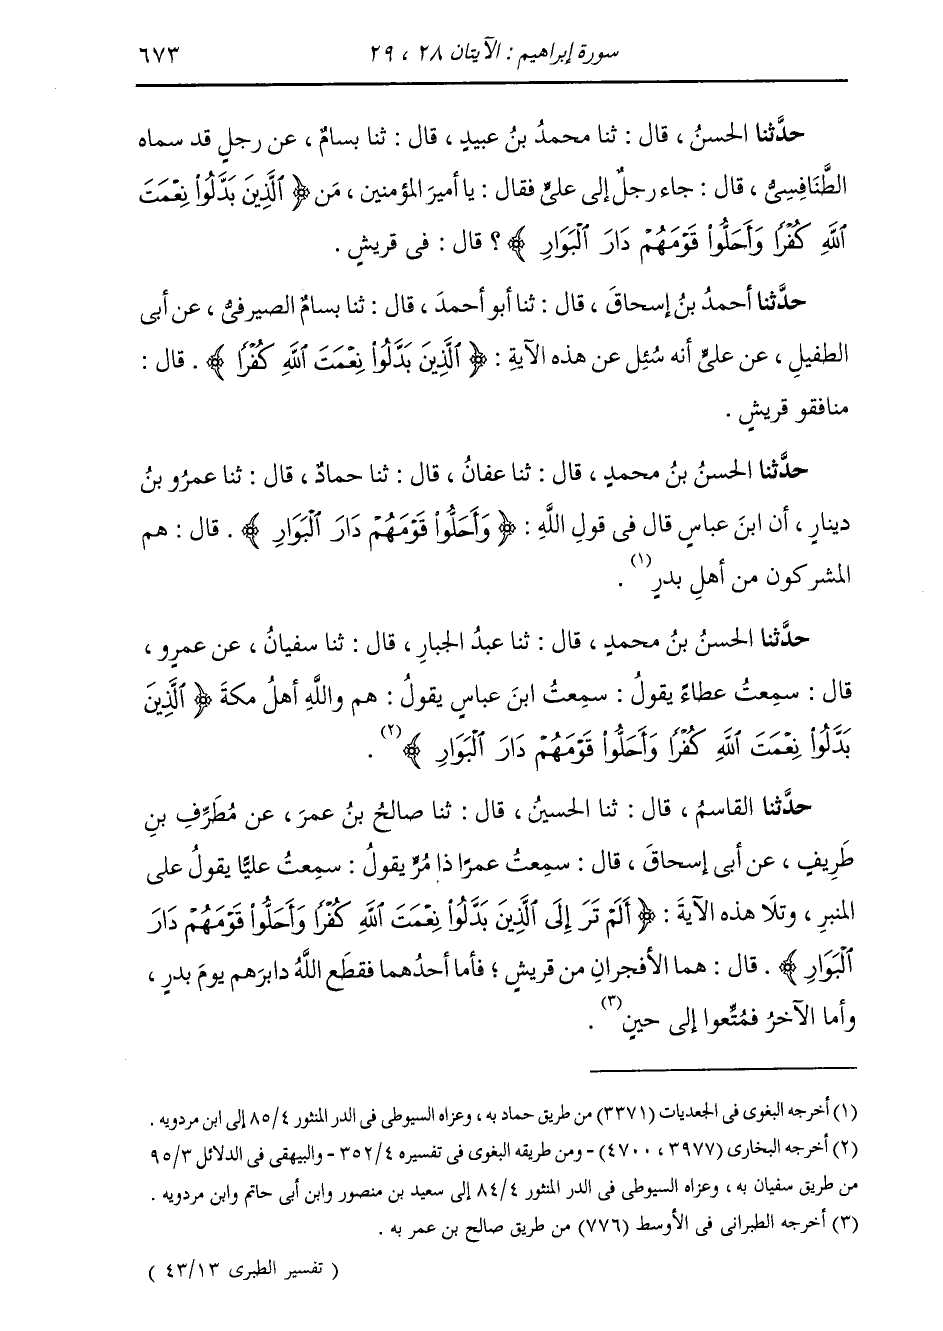 سورة إبراهيم : الآيتان ٢٨ ، ٢٩
٦٧٣
حدَّثنا الحسنُ ، قال : ثنا محمدُ بنُ عبيدٍ ، قال : ثنا بسامٌ ، عن رجلٍ قد سماه
الطَّنَافِسِىُّ ، قال : جاء رجلٌ إلى علىٍّ فقال : يا أميرَ المؤمنين ، مَن ﴿ ٱلَّذِينَ بَدَّلُوا۟ نِعْمَتَ
ٱللَّهِ كُفْرًا وَأَحَلُّوا۟ قَوْمَهُمْ دَارَ ٱلْبَوَارِ ﴾ ؟ قال : فى قريشٍ .
حدَّثنا أحمدُ بنُ إسحاقَ ، قال : ثنا أبو أحمدَ ، قال : ثنا بسامٌ الصيرفىُّ ، عن أبى
الطفيلِ ، عن علىٍّ أنه سُئِل عن هذه الآيةِ : ﴿ ٱلَّذِينَ بَدَّلُوا۟ نِعْمَتَ ٱللَّهِ كُفْرًا ﴾ . قال :
منافقو قريشٍ .
حدَّثنا الحسنُ بنُ محمدٍ ، قال : ثنا عفانُ ، قال : ثنا حمادٌ ، قال : ثنا عمرُو بنُ
دينارٍ ، أن ابنَ عباسٍ قال فى قولِ اللَّهِ : ﴿ وَأَحَلُّوا۟ قَوْمَهُمْ دَارَ ٱلْبَوَارِ ﴾ . قال : هم
المشركون من أهلِ بدرٍ(١) .
حدَّثنا الحسنُ بنُ محمدٍ ، قال : ثنا عبدُ الجبارِ ، قال : ثنا سفيانُ ، عن عمرٍو ،
قال : سمِعتُ عطاءً يقولُ : سمِعتُ ابنَ عباسٍ يقولُ : هم واللَّهِ أهلُ مكةَ ﴿ ٱلَّذِينَ
بَدَّلُوا۟ نِعْمَتَ ٱللَّهِ كُفْرًا وَأَحَلُّوا۟ قَوْمَهُمْ دَارَ ٱلْبَوَارِ ﴾(٢) .
حدَّثنا القاسمُ ، قال : ثنا الحسينُ ، قال : ثنا صالحُ بنُ عمرَ ، عن مُطَرِّفِ بنِ
طَرِيفٍ ، عن أبى إسحاقَ ، قال : سمِعتُ عمرًا ذا مُرٍّ يقولُ : سمِعتُ عليًّا يقولُ على
المنبرِ ، وتلَا هذه الآيةَ : ﴿ أَلَمْ تَرَ إِلَى ٱلَّذِينَ بَدَّلُوا۟ نِعْمَتَ ٱللَّهِ كُفْرًا وَأَحَلُّوا۟ قَوْمَهُمْ دَارَ
ٱلْبَوَارِ ﴾ . قال : هما الأفجرانِ من قريشٍ ؛ فأما أحدُهما فقطَع اللَّهُ دابرَهم يومَ بدرٍ ،
وأما الآخرُ فمُتِّعوا إلى حينٍ(٣) .
(١) أخرجه البغوى فى الجعديات (٣٣٧١) من طريق حماد به ، وعزاه السيوطى فى الدر المنثور ٨٥/٤ إلى ابن مردويه .
(٢) أخرجه البخارى (٣٩٧٧ ، ٤٧٠٠) - ومن طريقه البغوى فى تفسيره ٣٥٢/٤ - والبيهقى فى الدلائل ٩٥/٣
من طريق سفيان به ، وعزاه السيوطى فى الدر المنثور ٨٤/٤ إلى سعيد بن منصور وابن أبى حاتم وابن مردويه .
(٣) أخرجه الطبرانى فى الأوسط (٧٧٦) من طريق صالح بن عمر به .
( تفسير الطبرى ٤٣/١٣ )